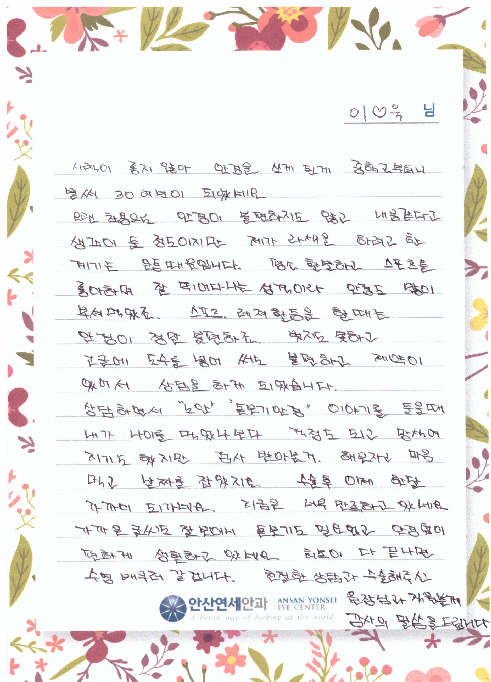 이♡욱 님
시력이 좋지 않아 안경을 쓰게 된게 중학교부터니
벌써 30여년이 되었네요
오랜 착용으로 안경이 불편하지도 않고 내몸같다고
생각이 들 정도이지만 제가 라섹을 하려고 한
계기는 운동때문입니다. 평소 활발하고 스포츠를
좋아하며 잘 뛰어다니는 성격이라 안경도 많이
부셔먹었죠. 스포츠. 레져활동을 할때는
안경이 정말 불편하죠. 벗지도 못하고
고글에 도수를 넣어 써도 불편하고 제약이
있어서 상담을 하게 되었습니다.
상담하면서 "노안" "돋보기안경" 이야기를 들을때
내가 나이를 먹었나보다 걱정도 되고 망설여
지기도 했지만 검사 받아보자. 해보자고 마음
먹고 날짜를 잡았지요 수술후 이제 한달
가까이 되가네요. 지금은 너무 만족하고 있네요
가까운 글씨도 잘보여서 돋보기도 필요없고 안경없이
편하게 생활하고 있네요 코로나 다 끝나면
수영 배우러 갈겁니다. 친절한 상담과 수술해주신
원장님과 직원분께
감사의 말씀을 드립니다
안산연세안과 ANSAN YONSEI
EYE CENTER
A better way of looking at the world